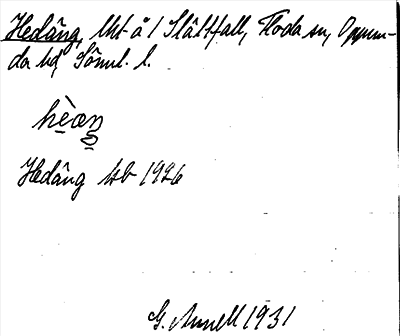 Hedäng, lht å 1 Slättfall, Floda sn, Oppun-
da hd, Söml. l.
hèæŋ
Hedäng hb 1926
G. Annell 1931